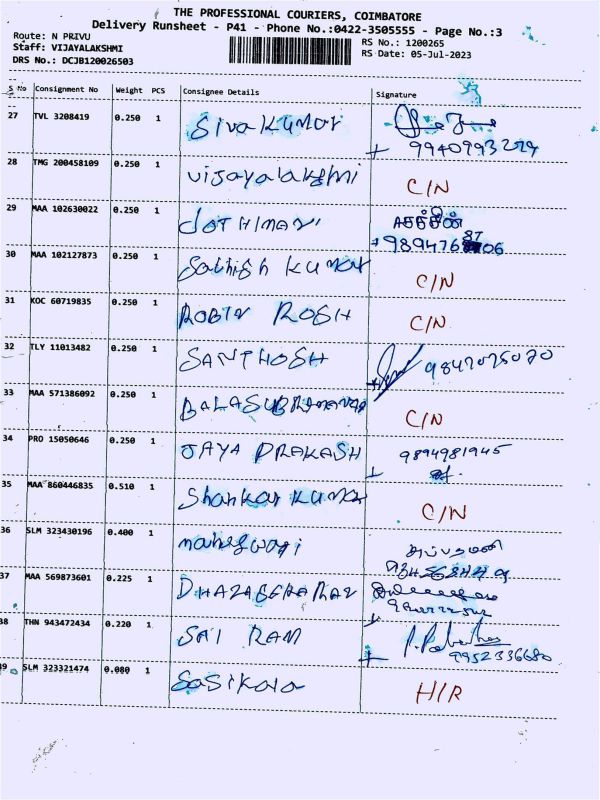 THE PROFESSIONAL COURIERS, COIMBATORE
Delivery Runsheet - P41 - Phone No.:0422-3505555 - Page No.:3
Route: N PRIVU
RS No.: 1200265
Staff: VIJAYALAKSHMI
RS Date: 05-Jul-2023
DRS No.: DCJB120026503
S No Consignment No Weight PCS Consignee Details Signature
27 TVL 3208419 0.250 1 Siva Kumar
28 TMG 200458109 0.250 1 vijayalakshmi C/N
29 MAA 102630022 0.250 1 JOTHIMANI
30 MAA 102127873 0.250 1 Sathish Kumar C/N
31 KOC 60719835 0.250 1 ROBIN ROSH C/N
32 TLY 11013482 0.250 1 SANTHOSH
33 MAA 571386092 0.250 1 BALASUBRAMANIAN C/N
34 PRO 15050646 0.250 1 JAYA PRAKASH 9894981945
35 MAA 860446835 0.510 1 Shankar Kumar C/N
36 SLM 323430196 0.400 1 maheswari
37 MAA 569873601 0.225 1
38 THN 943472434 0.220 1 SAI RAM
9952336680
39 SLM 323321474 0.080 1 Sasikala H/R